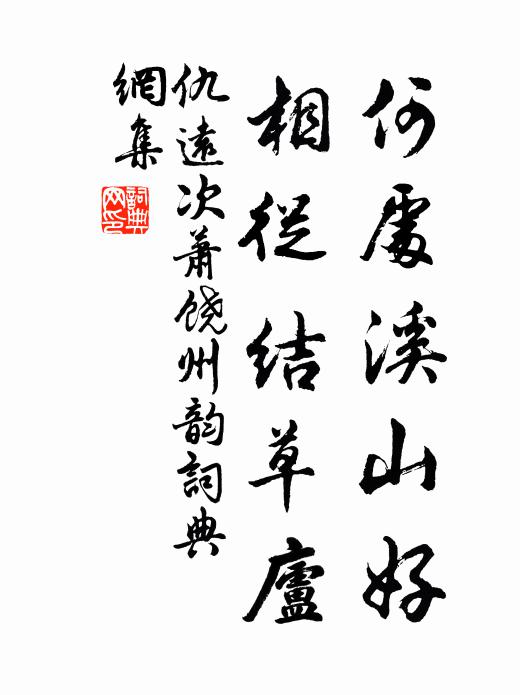 何處溪山好
相從結草廬
仇遠次蕭饒州韵詞典
網集
詞典
网印